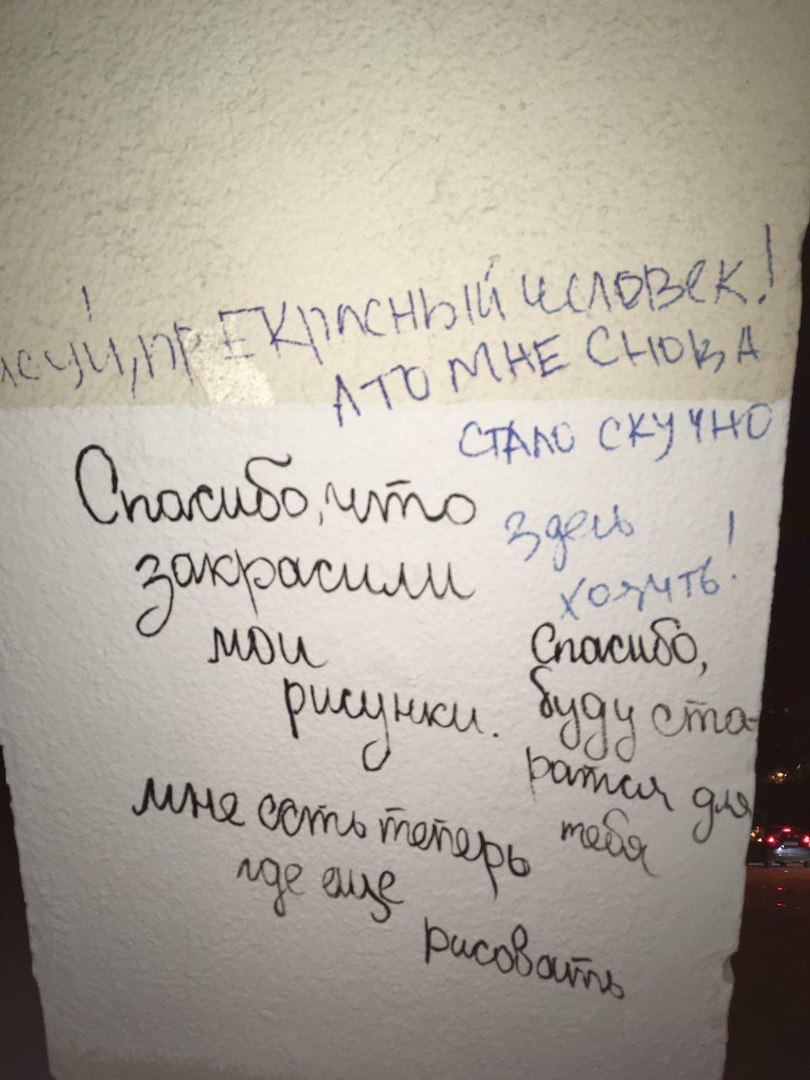 исуй, прЕКрАсНый человек!
А ТО МНЕ СНОВА
СТАЛО СКУЧНО
здесь
ходить!
Спасибо, что
закрасили
мои
рисунки.
мне есть теперь
где еще
рисовать
Спасибо,
буду ста-
ратся для
тебя